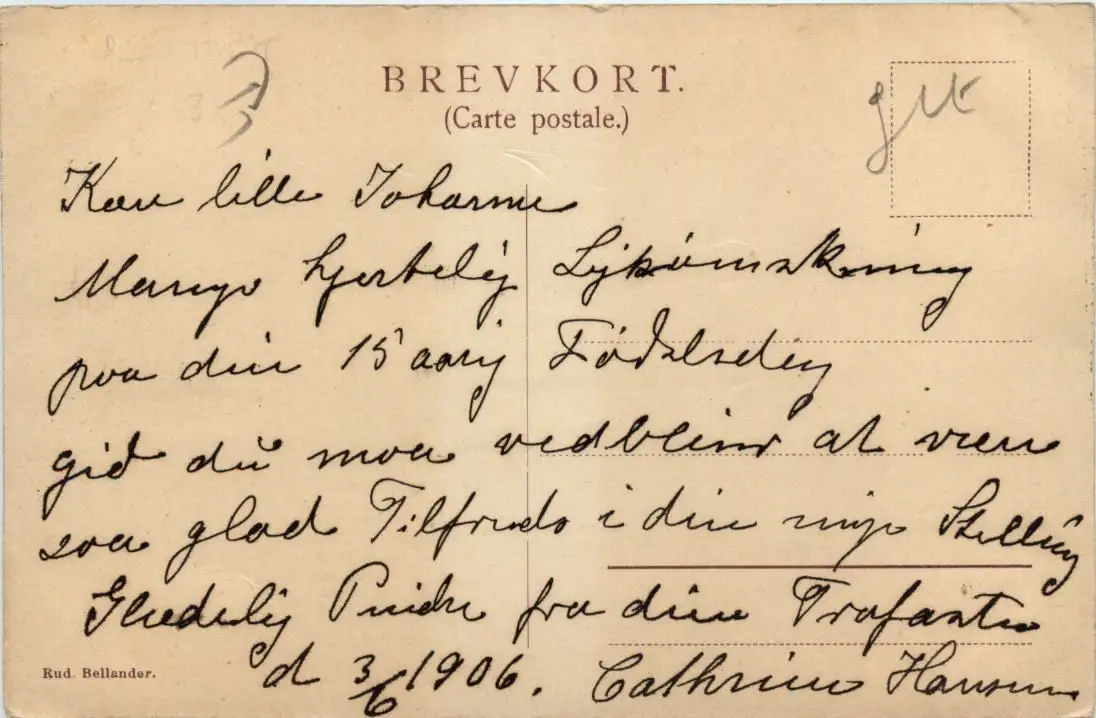 BREVKORT.
(Carte postale.)
Kære lille Johanne
Mange hjertelig Lykønskning
paa din 15 aarig Fødselsdag
gid du maa vedbliver at være
saa glad Tilfreds i din nye Stelling
Glædelig Pindse fra din Trofaste
d 3/6 1906. Cathrine Hansen
Rud. Bellander.